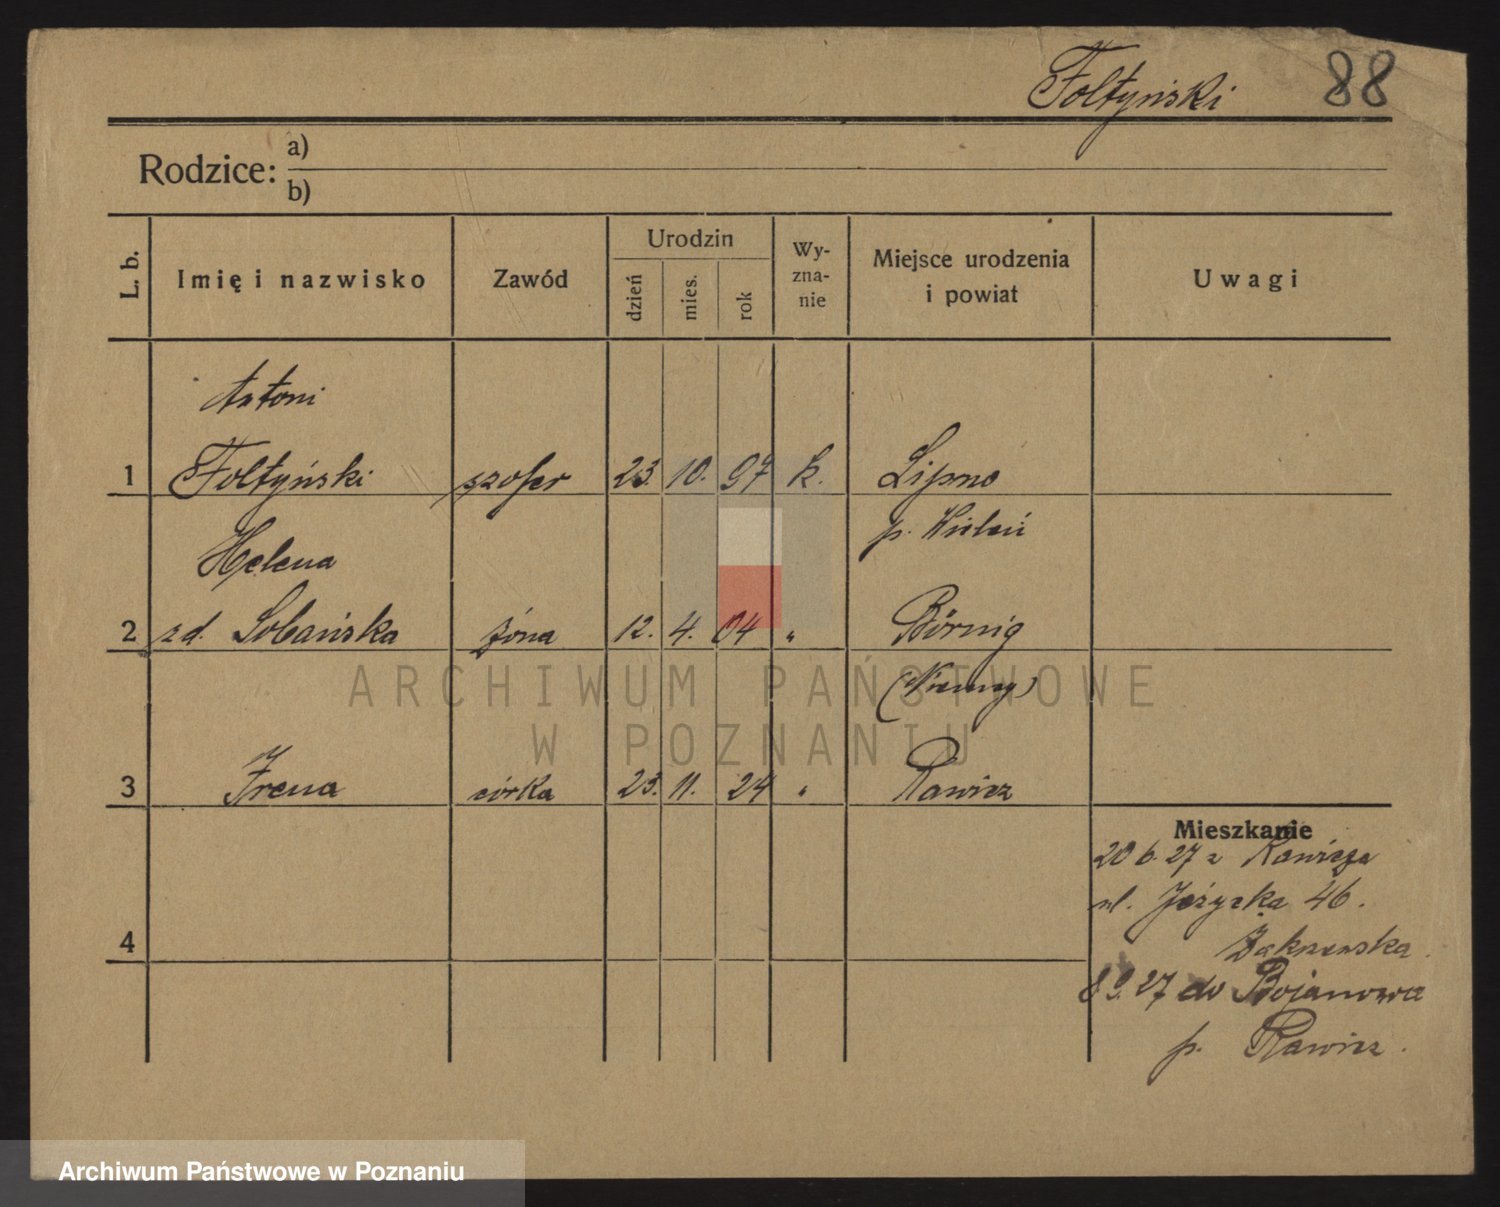 Fołtyński 88
Rodzice: a)
b)
L. b.
Imię i nazwisko
Zawód
Urodzin
dzień
mies.
rok
Wy-
zna-
nie
Miejsce urodzenia
i powiat
Uwagi
Antoni
1 Fołtyński szofer 23. 10. 97 k. Lipno
p. Wieleń
Helena
2 zd. Sobańska żona 12. 4. 04 " Börnig
(Niemcy)
3 Irena córka 23. 11. 24 " Rawicz
Mieszkanie
20 6. 27 z Rawicza
ul. Jeżycka 46.
4
8 9. 27 do Bojanowa
p. Rawicz.
ARCHIWUM PAŃSTWOWE
W POZNANIU
Archiwum Państwowe w Poznaniu